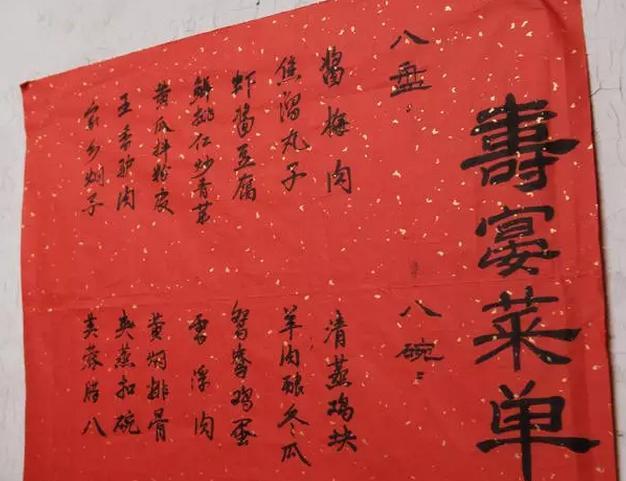 壽宴菜单
八盘:
酱梅肉
焦溜丸子
虾酱豆腐
鲜桃仁炒青菜
黄瓜拌粉皮
五香驴肉
家乡焖子
八碗:
清蒸鸡块
羊肉酿冬瓜
鸳鸯鸡蛋
浮肉
黄焖排骨
扣碗
芙蓉